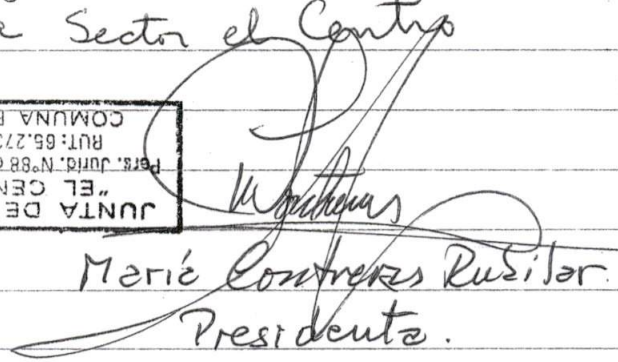 Sector el Centro
JUNTA DE
"EL CEN
Pers. Jurid. Nº88
RUT: 65.27
COMUNA
María Contreras Rubilar.
Presidenta.